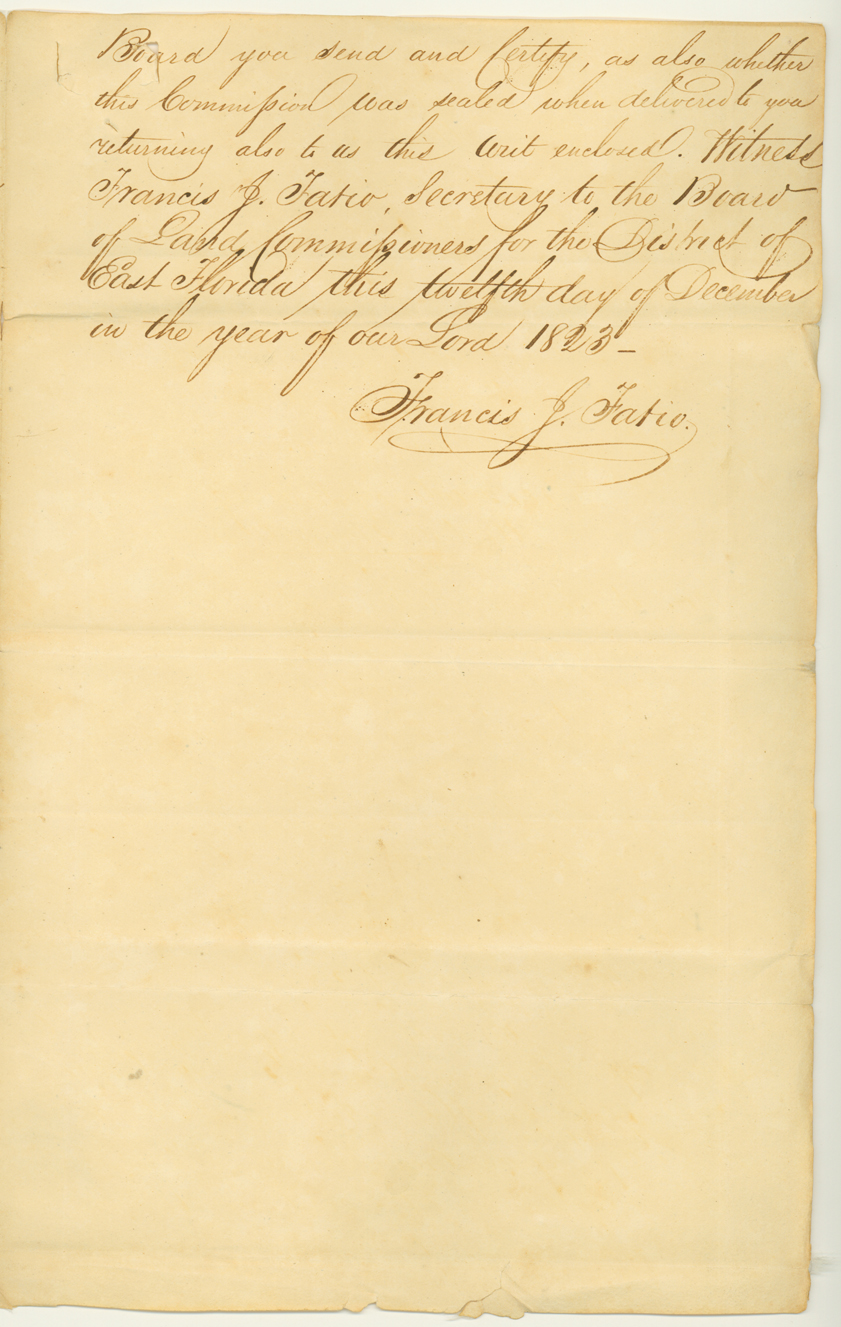 Board you send and Certify, as also whether
this Commission was sealed when delivered to you
returning also to us this Writ enclosed. Witness
Francis J. Fatio, Secretary to the Board
of Land Commissioners for the District of
East Florida this twelfth day of December
in the year of our Lord 1823 –
Francis J. Fatio.